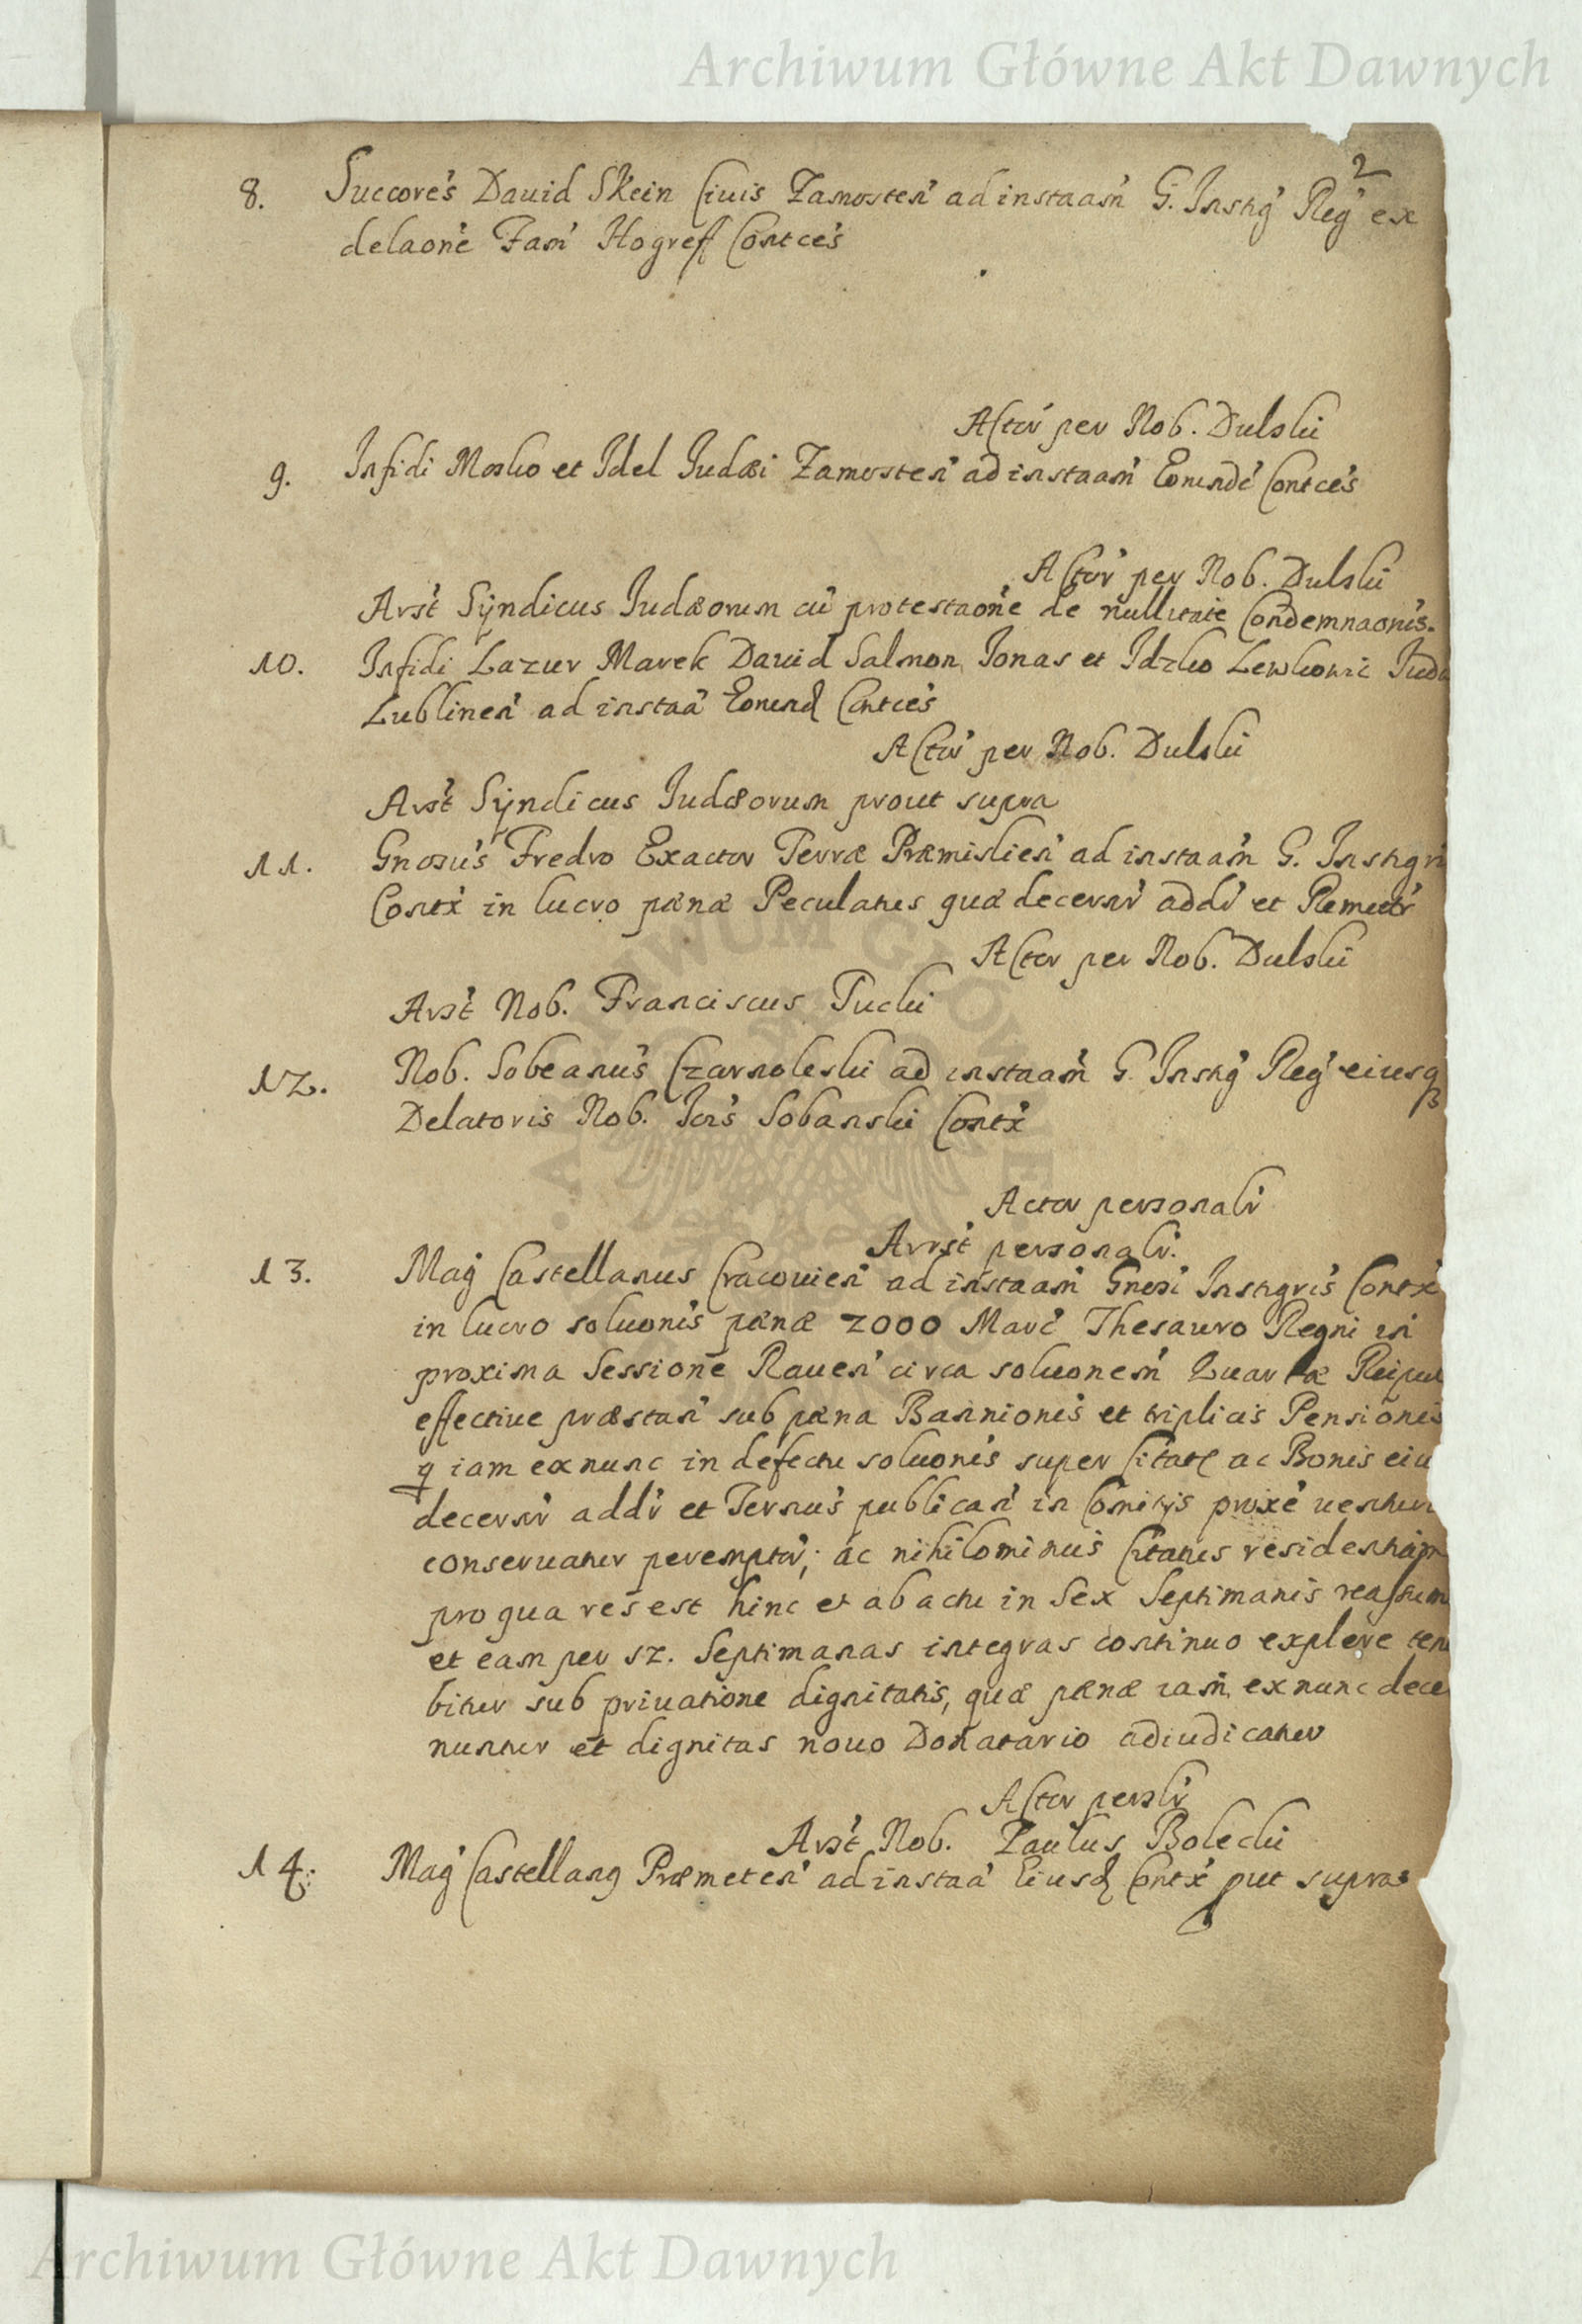 Archiwum Główne Akt Dawnych
2
8. Succore's Dauid Skein Ciuis Zamosten' ad instaam' G. Instig' Reg' ex
delaone Fam' Hogreff Contce's
Actor' per Nob. Dulski
9. Infidi Mosko et Idel Judæi Zamosten' ad instaam' Eorunde' Contce's
Actor' per Nob. Dulski
Arst' Syndicus Judæorum cu' protestaone de nullitate Condemnaonis.
10. Infidi Lazur Marek Dauid Salmon Jonas et Idzko Lewkowic Juda
Lublinen' ad instaa' Eorund Contce's
Actor' per Nob. Dulski
Arst' Syndicus Judæorum prout supra
11. Gnosus Fredro Exactor Terræ Præmislien' ad instaam' G. Instigri
Contx' in lucro pænæ Peculatus quæ decernr' addr' et Remittr'
Actor per Nob. Dulski
Arst' Nob. Franciscus Tucki
12. Nob. Sobeanus Czarnoleski ad instaam' G. Instig' Reg' eiusq
Delatoris Nob. Jois Sobanski Contx'
Actor personalr'
Arrst' personalr'.
13. Mag' Castellanus Cracouien' ad instaam' Gnosi Instigris Contx'
in lucro soluonis pænæ 2000 Marc' Thesauro Regni in
proxima Sessione Rauen' circa soluonem' Quartæ Reipu
effectiue præstan' sub pæna Bannionis et triplicis Pensionis
q iam ex nunc in defectu soluonis super Citat ac Bonis eiu
decernr' addr' et Ternus publican' in Comitijs proxe' uentur
conseruatur peremptor'; ac nihilominus Citatus residentiam
pro qua res est hinc et ab actu in Sex Septimanis reassum
et eam per 12. Septimanas integras continuo explere tene
bitur sub priuatione dignitatis, quæ pænæ iam ex nunc dece
nuntur et dignitas nouo Donatario adiudicatur
Actor perslr'
Arst' Nob. Paulus Bolecki
14. Mag' Castellang Præmeten' ad instaa' Eiusd Contx' put supra
Archiwum Główne Akt Dawnych